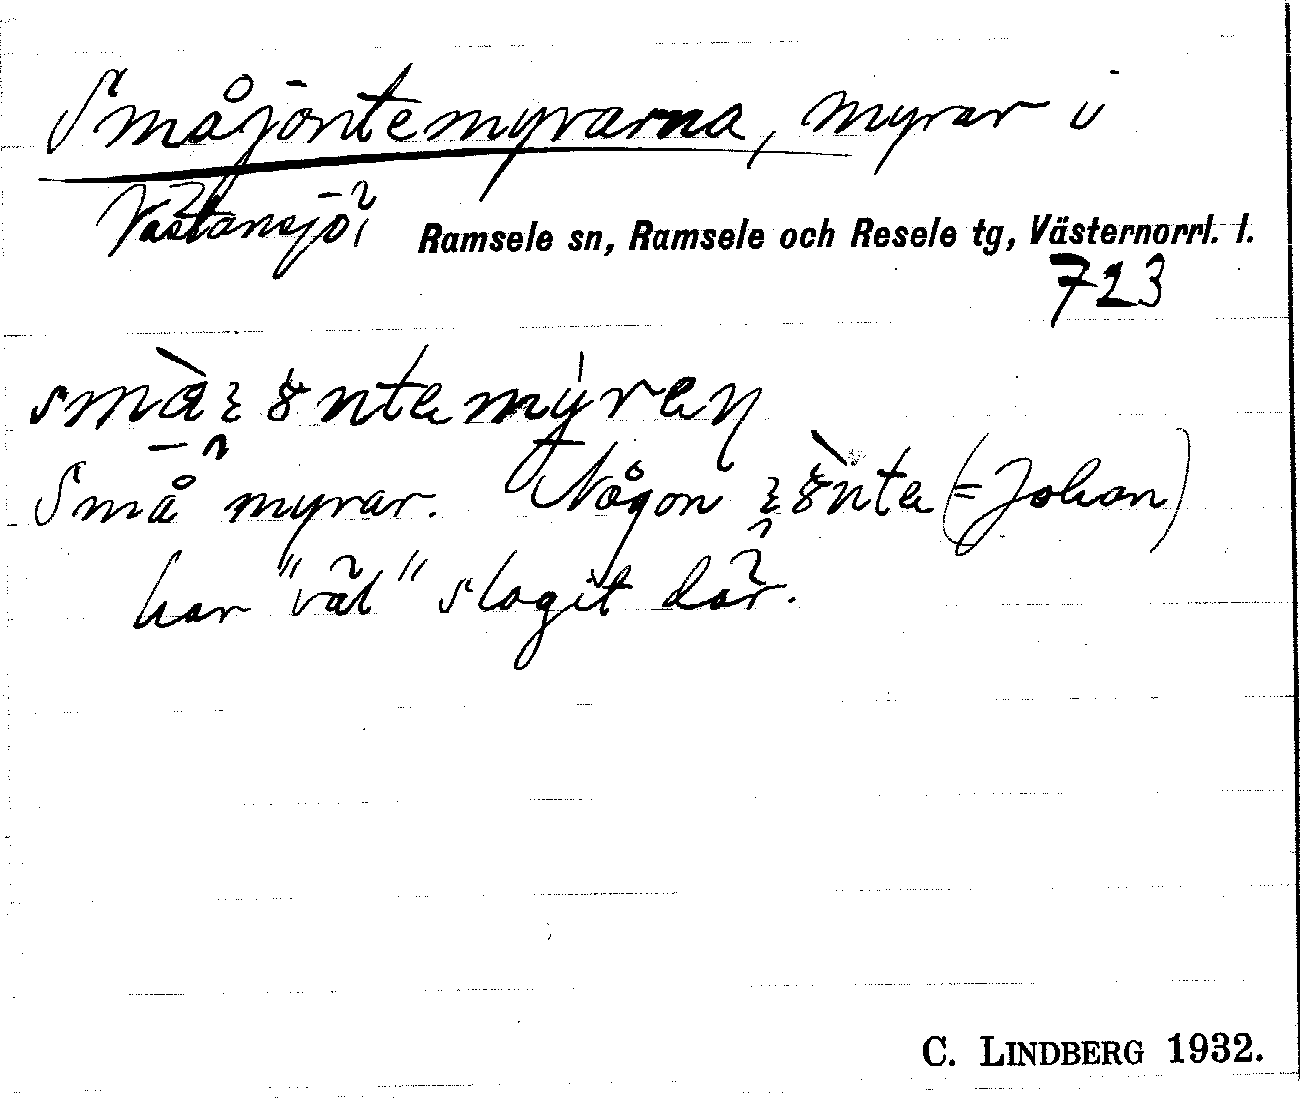 Småjontemyrarna, myrar i
Västansjö, Ramsele sn, Ramsele och Resele tg, Västernorrl. l.
723
Små myrar. Någon (= Johan)
har "väl" slagit där.
C. LINDBERG 1932.